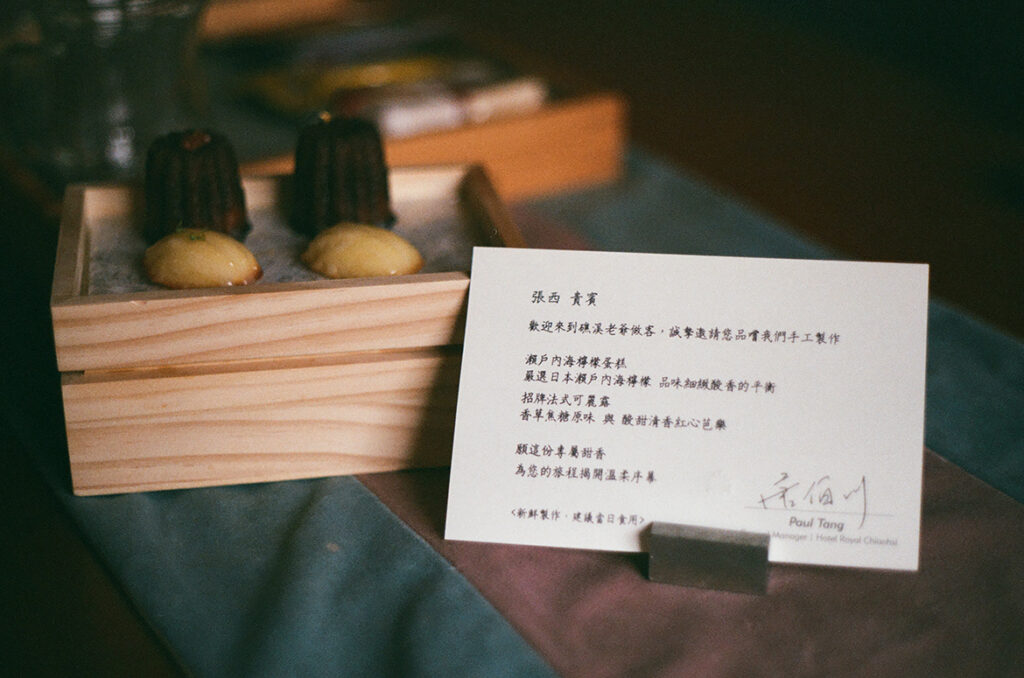 張西 貴賓
歡迎來到礁溪老爺做客，誠摯邀請您品嚐我們手工製作
瀨戶內海檸檬蛋糕
嚴選日本瀨戶內海檸檬 品味細緻酸香的平衡
招牌法式可麗露
香草焦糖原味 與 酸甜清香紅心芭樂
願這份專屬甜香
為您的旅程揭開溫柔序幕
<新鮮製作，建議當日食用>
Paul Tang
Manager | Hotel Royal Chiaohsi